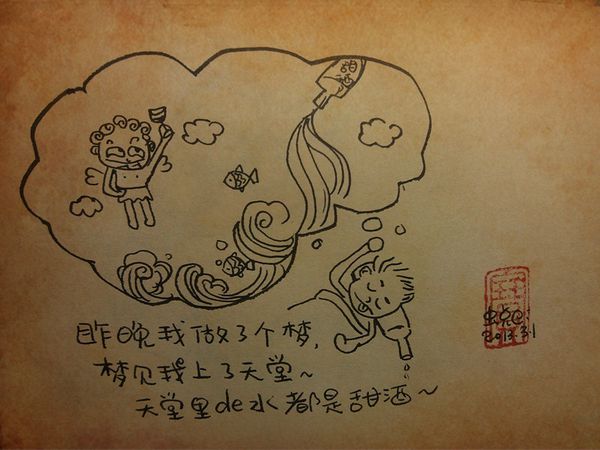 甜酒
昨晚我做了个梦，
梦见我上了天堂～
天堂里de水都是甜酒～
2013.3.1